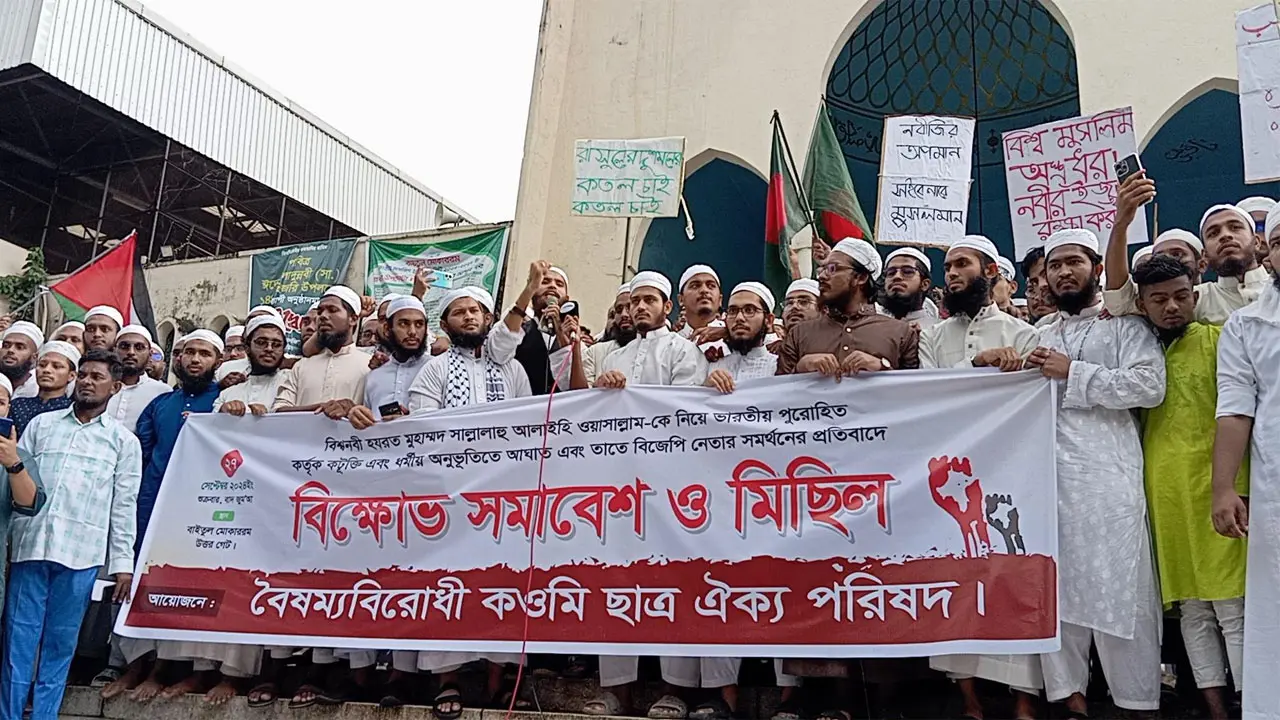 রাসুলের দুশমনের
কতল চাই
কতল চাই
নবীজির
অপমান
সইবেনারে
মুসলমান
বিশ্ব মুসলিম
অস্ত্র ধরা
নবীর ইজ্জত
রক্ষা কর
পবিত্র
বিশ্বনবী হযরত মুহাম্মদ সাল্লালাহু আলাইহি ওয়াসাল্লাম-কে নিয়ে ভারতীয় পুরোহিত
কর্তৃক কটূক্তি এবং ধর্মীয় অনুভূতিতে আঘাত এবং তাতে বিজেপি নেতার সমর্থনের প্রতিবাদে
২৭
সেপ্টেম্বর ২০২৪ইং
শুক্রবার, বাদ জুম'আ
স্থান
বাইতুল মোকাররম
উত্তর গেট।
বিক্ষোভ সমাবেশ ও মিছিল
আয়োজনে :
বৈষম্যবিরোধী কওমি ছাত্র ঐক্য পরিষদ।